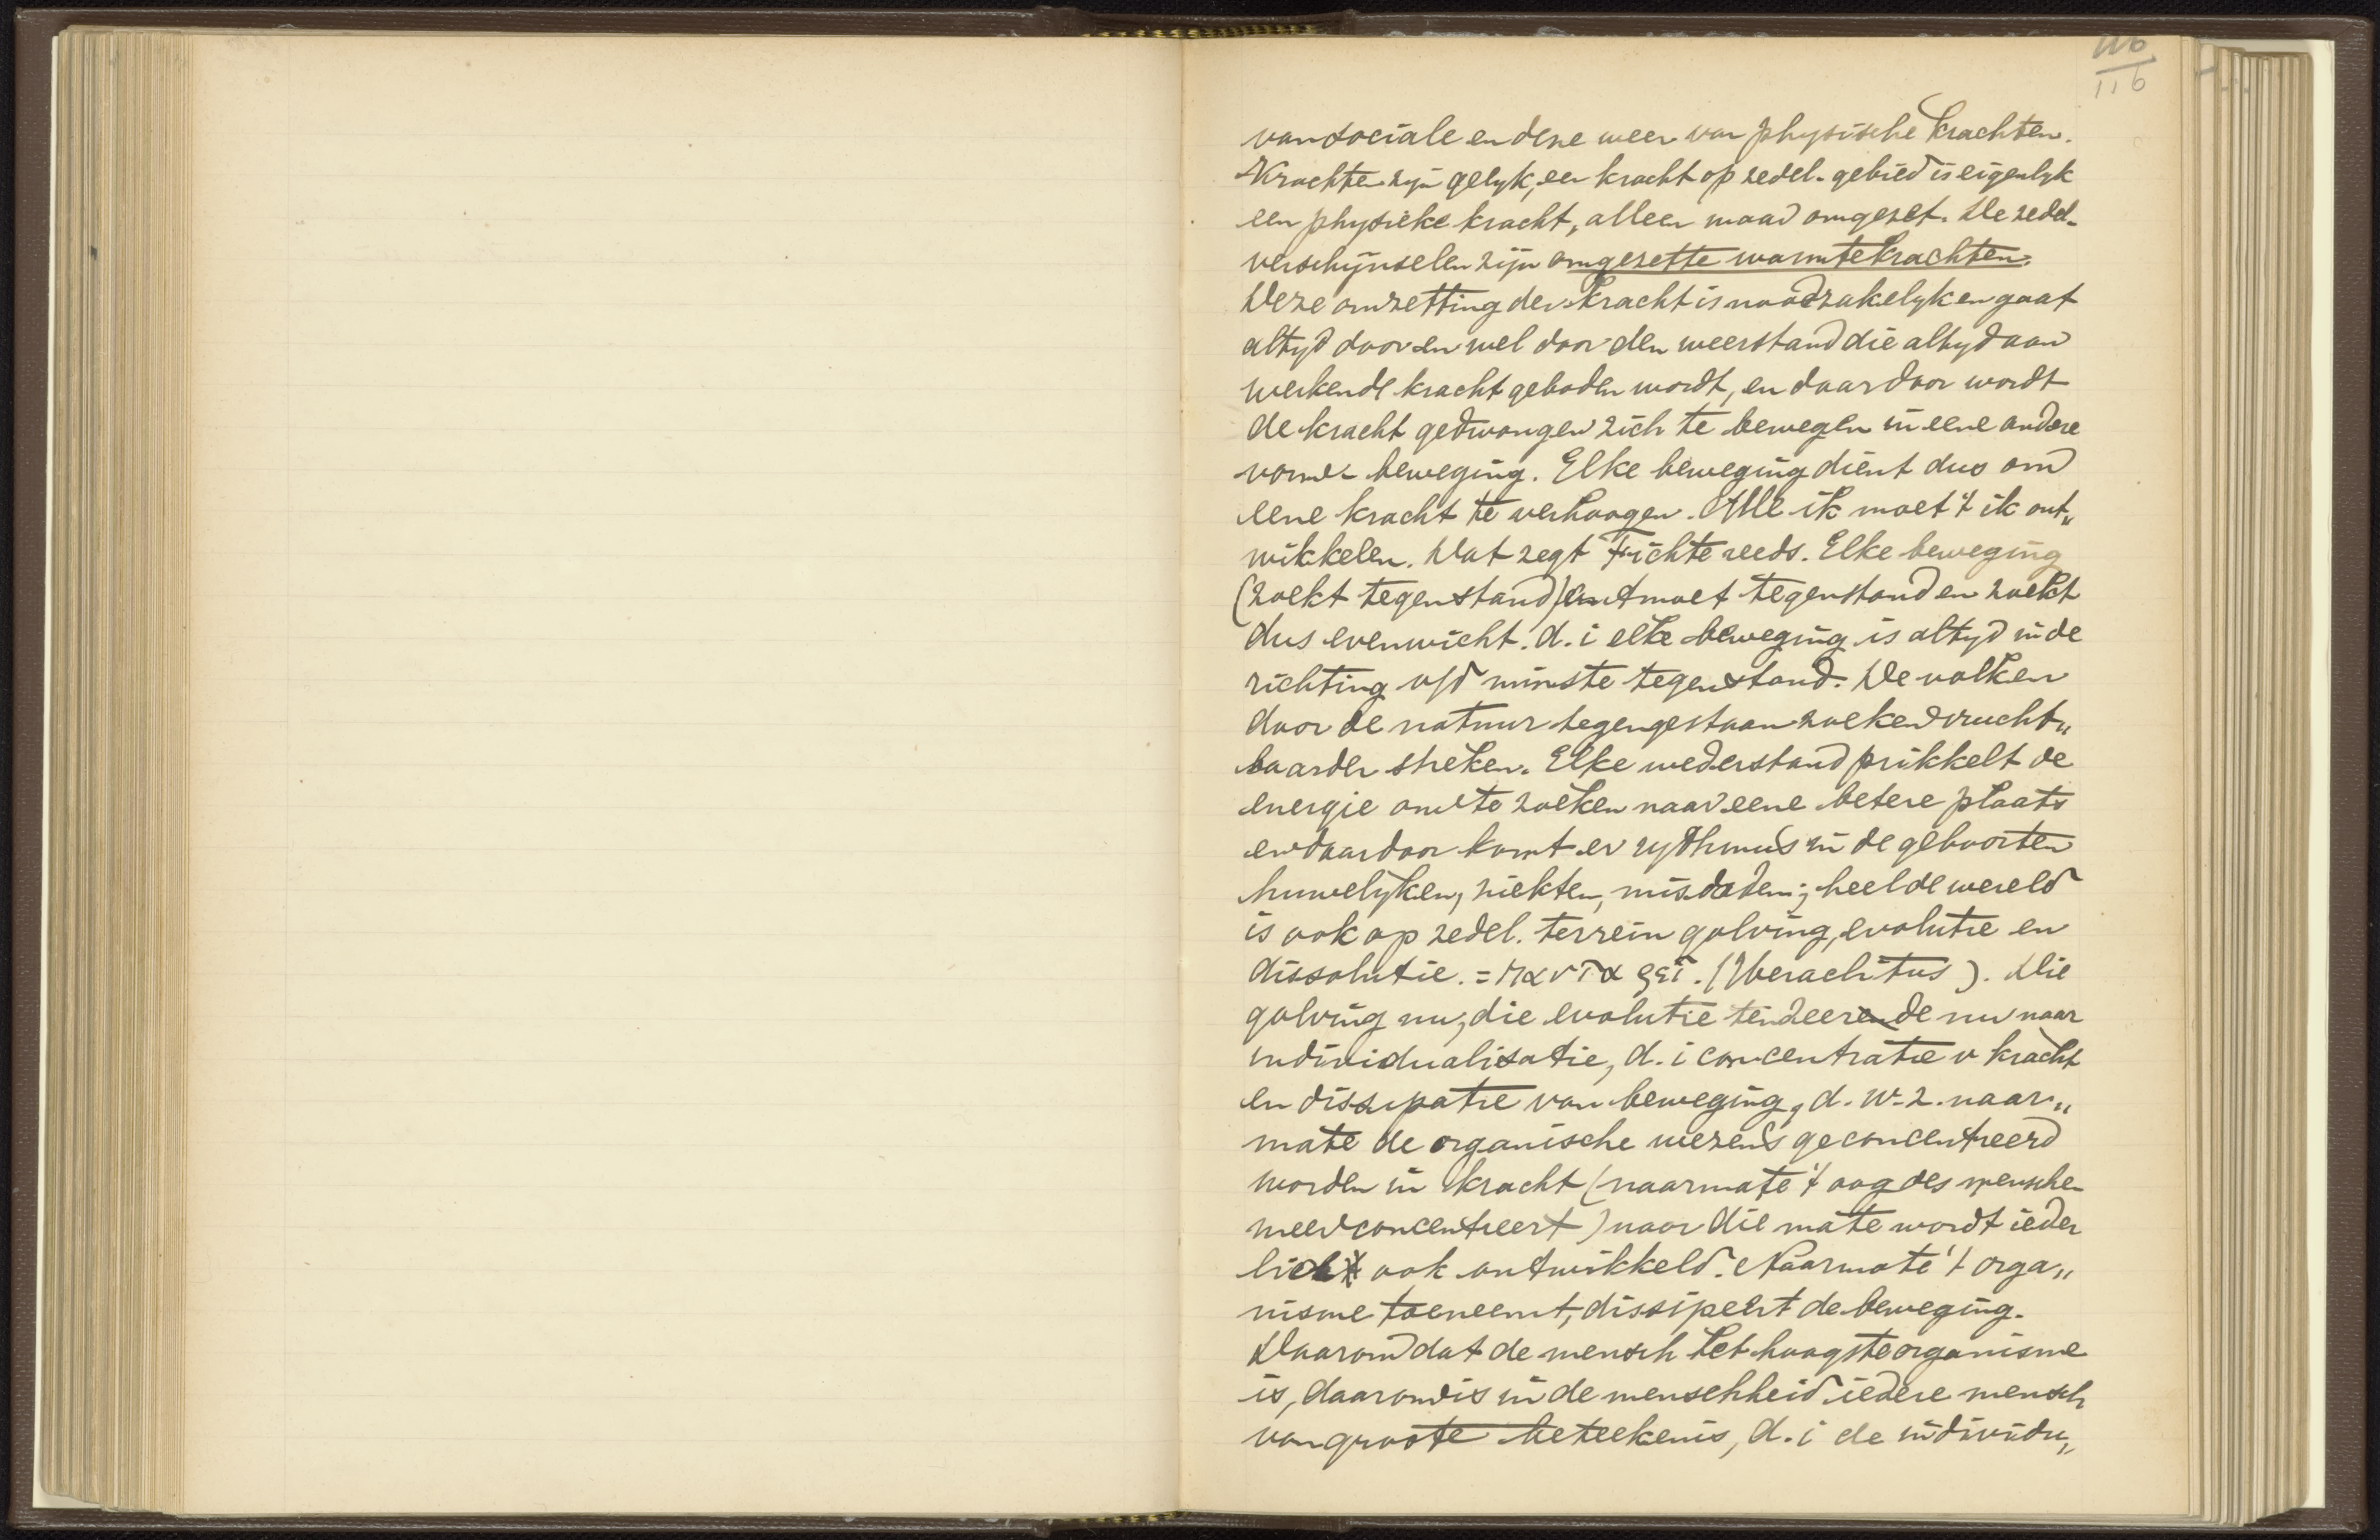 116
116
van sociale en deze weer van physische krachten.
Krachten zijn gelyk, een kracht op zedel. gebied is eigenlyk
een physieke kracht, alleen maar omgezet. De zedel.
verschijnselen zijn omgezette warmtekrachten.
Deze omzetting der kracht is noodzakelyk en gaat
altyd door en wel door den weerstand die altyd aan
werkende kracht geboden wordt, en daardoor wordt
de kracht gedwongen zich te bewegen in eene andere
vorm v beweging. Elke beweging dient dus om
eene kracht te verhoogen. Elk ik moet 't ik ont„
wikkelen. Dat zegt Fichte reeds. Elke beweging
(zoekt tegenstand) ontmoet tegenstand en zoekt
dus evenwicht. d. i elke beweging is altyd in de
richting v/d minste tegenstand. De volken
door de natuur tegengestaan zoeken vrucht„
baarder streken. Elke wederstand prikkelt de
energie om te zoeken naar eene betere plaats
en daardoor komt er rythmus in de geboorten
huwelyken, ziekten, misdaden; heel de wereld
is ook op zedel. terrein golving, evolutie en
dissolutie. = παντα ῥεῖ. (Heraclitus). Die
golving nu, die evolutie tendeerende nu naar
individualisatie, d. i concentratie v kracht
en dissipatie van beweging, d. w. z. naar„
mate de organische wezens geconcentreerd
worden in kracht (naarmate 't oog des mensche
meer concentreert) naar die mate wordt ieder
lid ook ontwikkeld. Naarmate 't orga„
nisme toeneemt, dissipeert de beweging.
Daarom dat de mensch het hoogste organisme
is, daarom is in de menschheid iedere mensch
van groote beteekenis, d. i de individu„